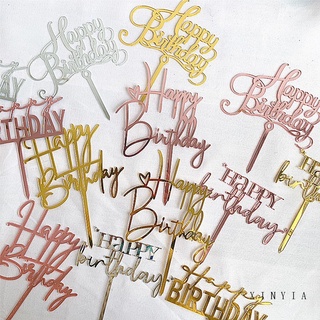 Happy
Birthday
Happy
Birthday
Happy
Birthday
Happy
BIRTHDAY
Happy
Birthday
Happy
Birthday
Happy
Birthday
HAPPY
birthday
HAPPY
birthday
Happy
Birthday
HAPPY
birthday
Happy
BIRTHDAY
XINYIA